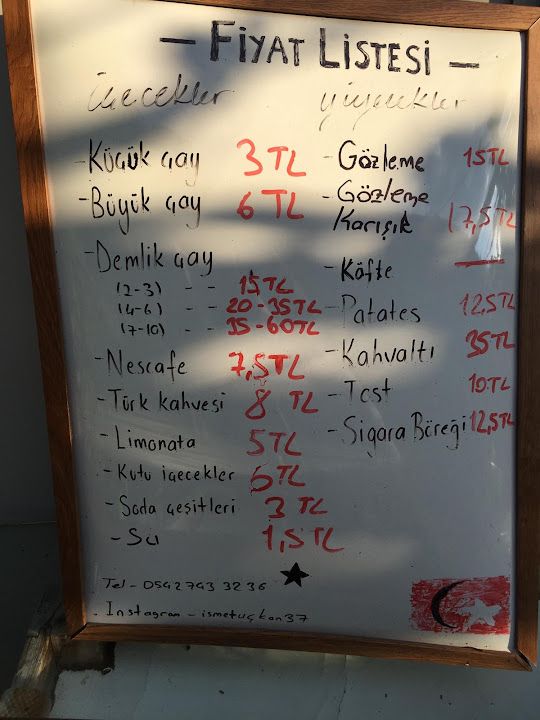 - FİYAT LİSTESİ -
içecekler
- Küçük çay 3 TL
- Büyük çay 6 TL
- Demlik çay
(2-3) - - 15 TL
(4-6) - - 20-35 TL
(7-10) - - 35-60 TL
- Nescafe 7,5 TL
- Türk kahvesi 8 TL
- Limonata 5 TL
- Kutu içecekler 6 TL
- Soda çeşitleri 3 TL
- Su 1,5 TL
yiyecekler
- Gözleme 15 TL
- Gözleme
Karışık 17,5 TL
- Köfte —
- Patates 12,5 TL
- Kahvaltı 35 TL
- Tost 10 TL
- Sigara Böreği 12,5 TL
Tel - 0542 743 32 36
- Instagram - ismetuçkan37